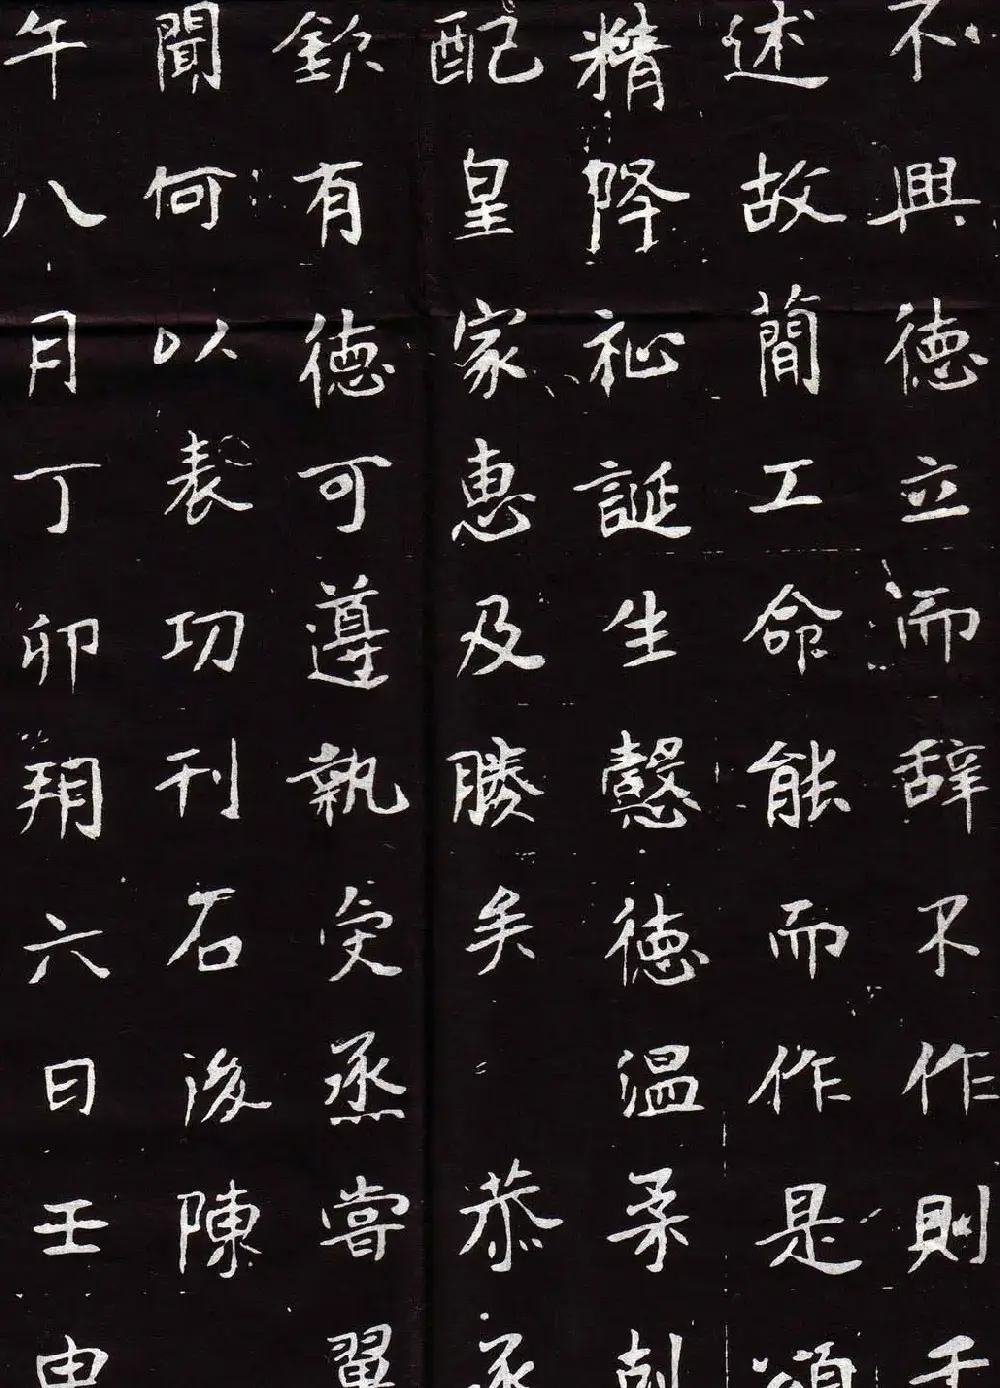 不興德立而辞不作則千
述故簡工命能而作是頌
精降祉誕生懿德温柔刻
配皇家惠及勝矣恭承
欽有德可遵執受烝嘗翼
聞何以表功刊石後陳
午八月丁卯朔六日壬申